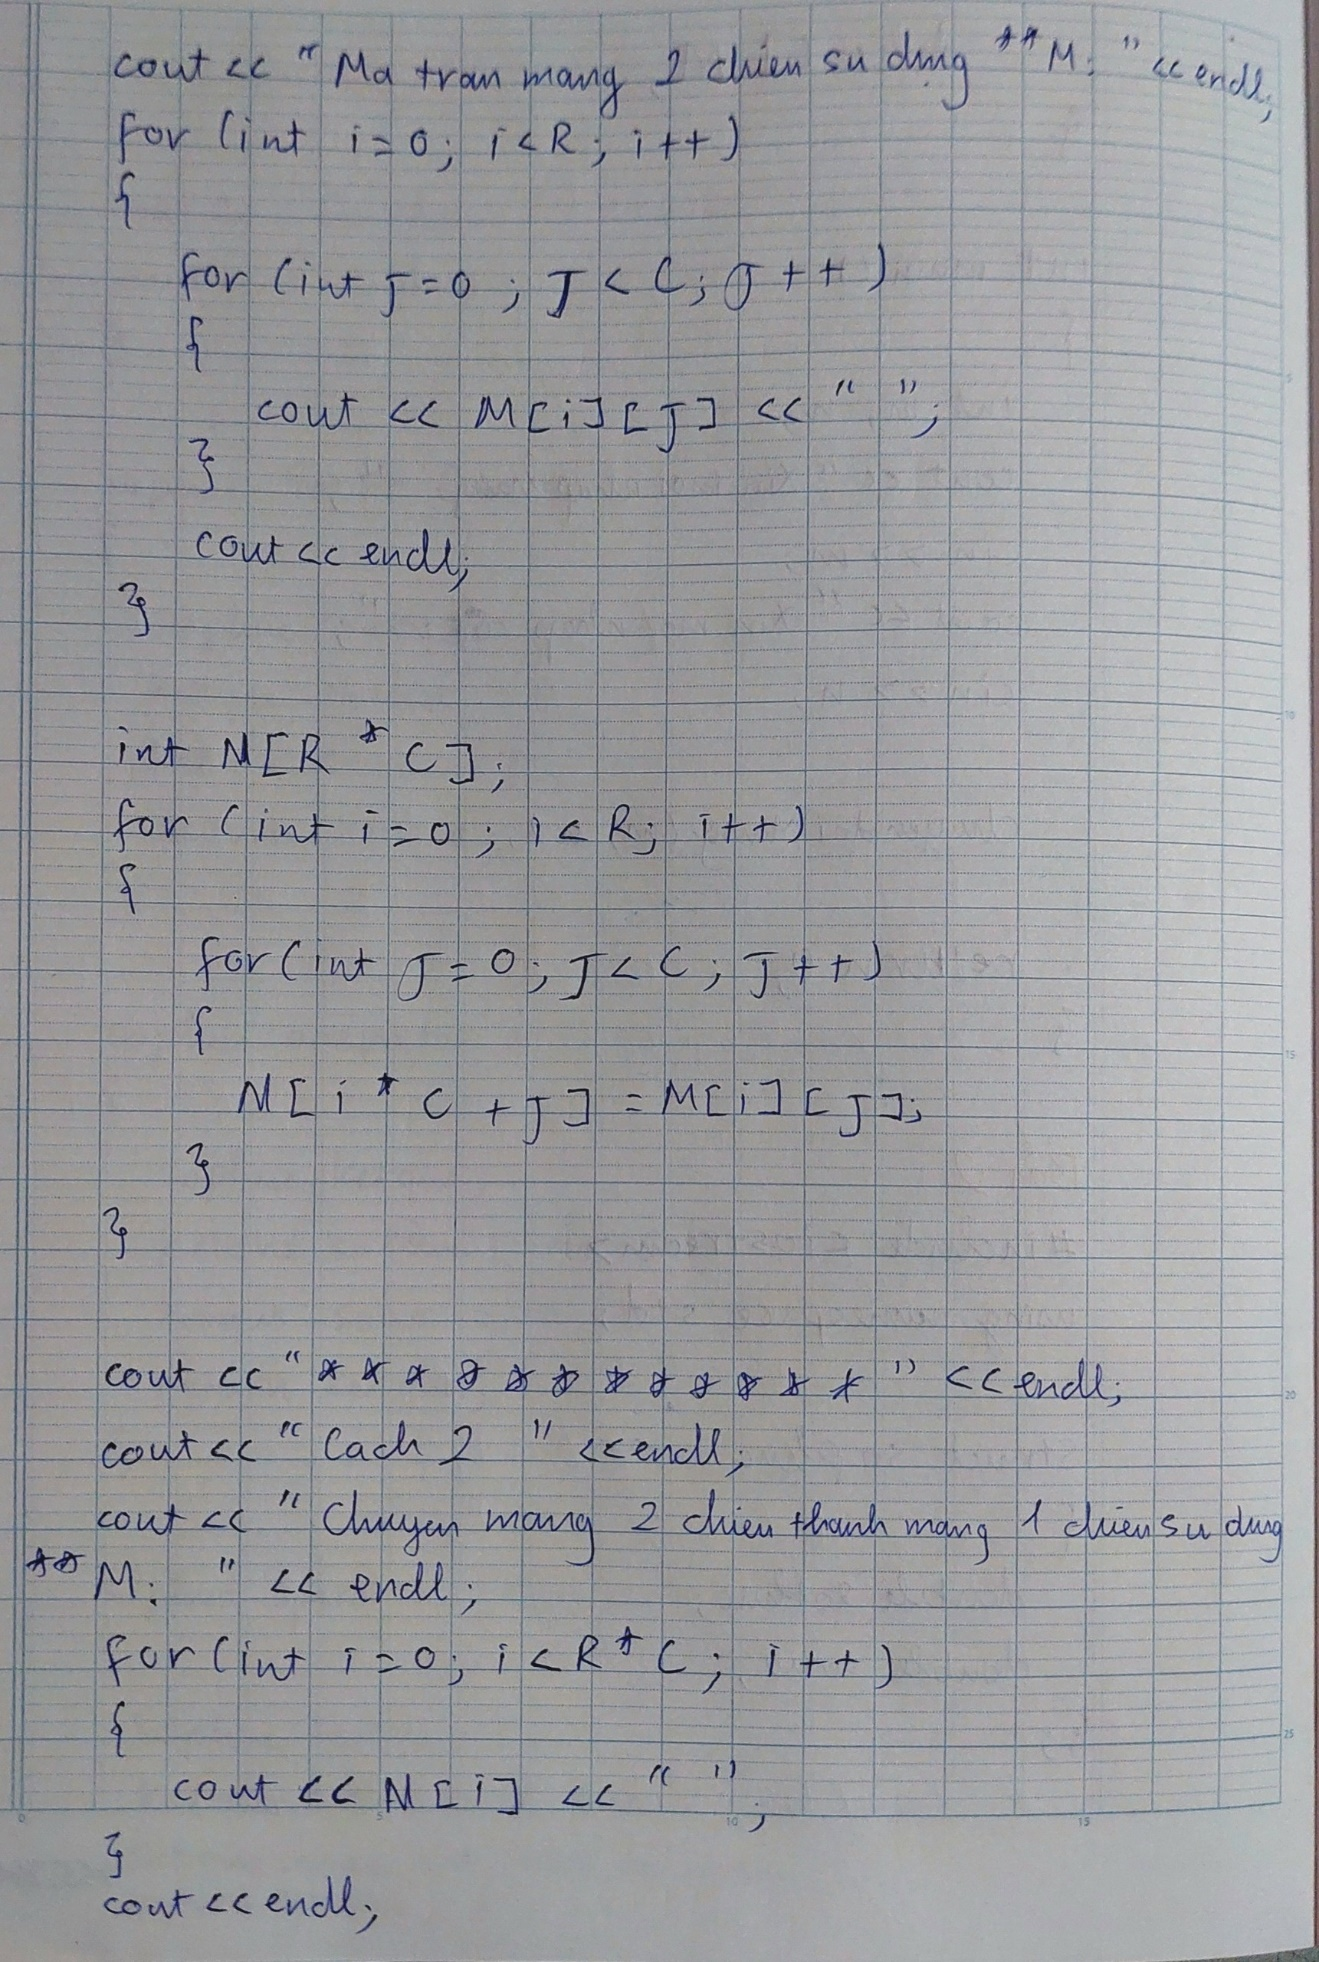 cout << "Ma tran mang 2 chieu su dung **M: " << endl;
for (int i=0; i<R; i++)
{
for (int j=0; j<C; j++)
{
cout << M[i][j] << " ";
}
cout << endl;
}
int N[R * C];
for (int i=0; i<R; i++)
{
for (int j=0; j<C; j++)
{
N[i * C + j] = M[i][j];
}
}
cout << "************" << endl;
cout << "Cach 2 " << endl;
cout << "Chuyen mang 2 chieu thanh mang 1 chieu su dung
**M: " << endl;
for (int i=0; i<R*C; i++)
{
cout << N[i] << " ";
}
cout << endl;